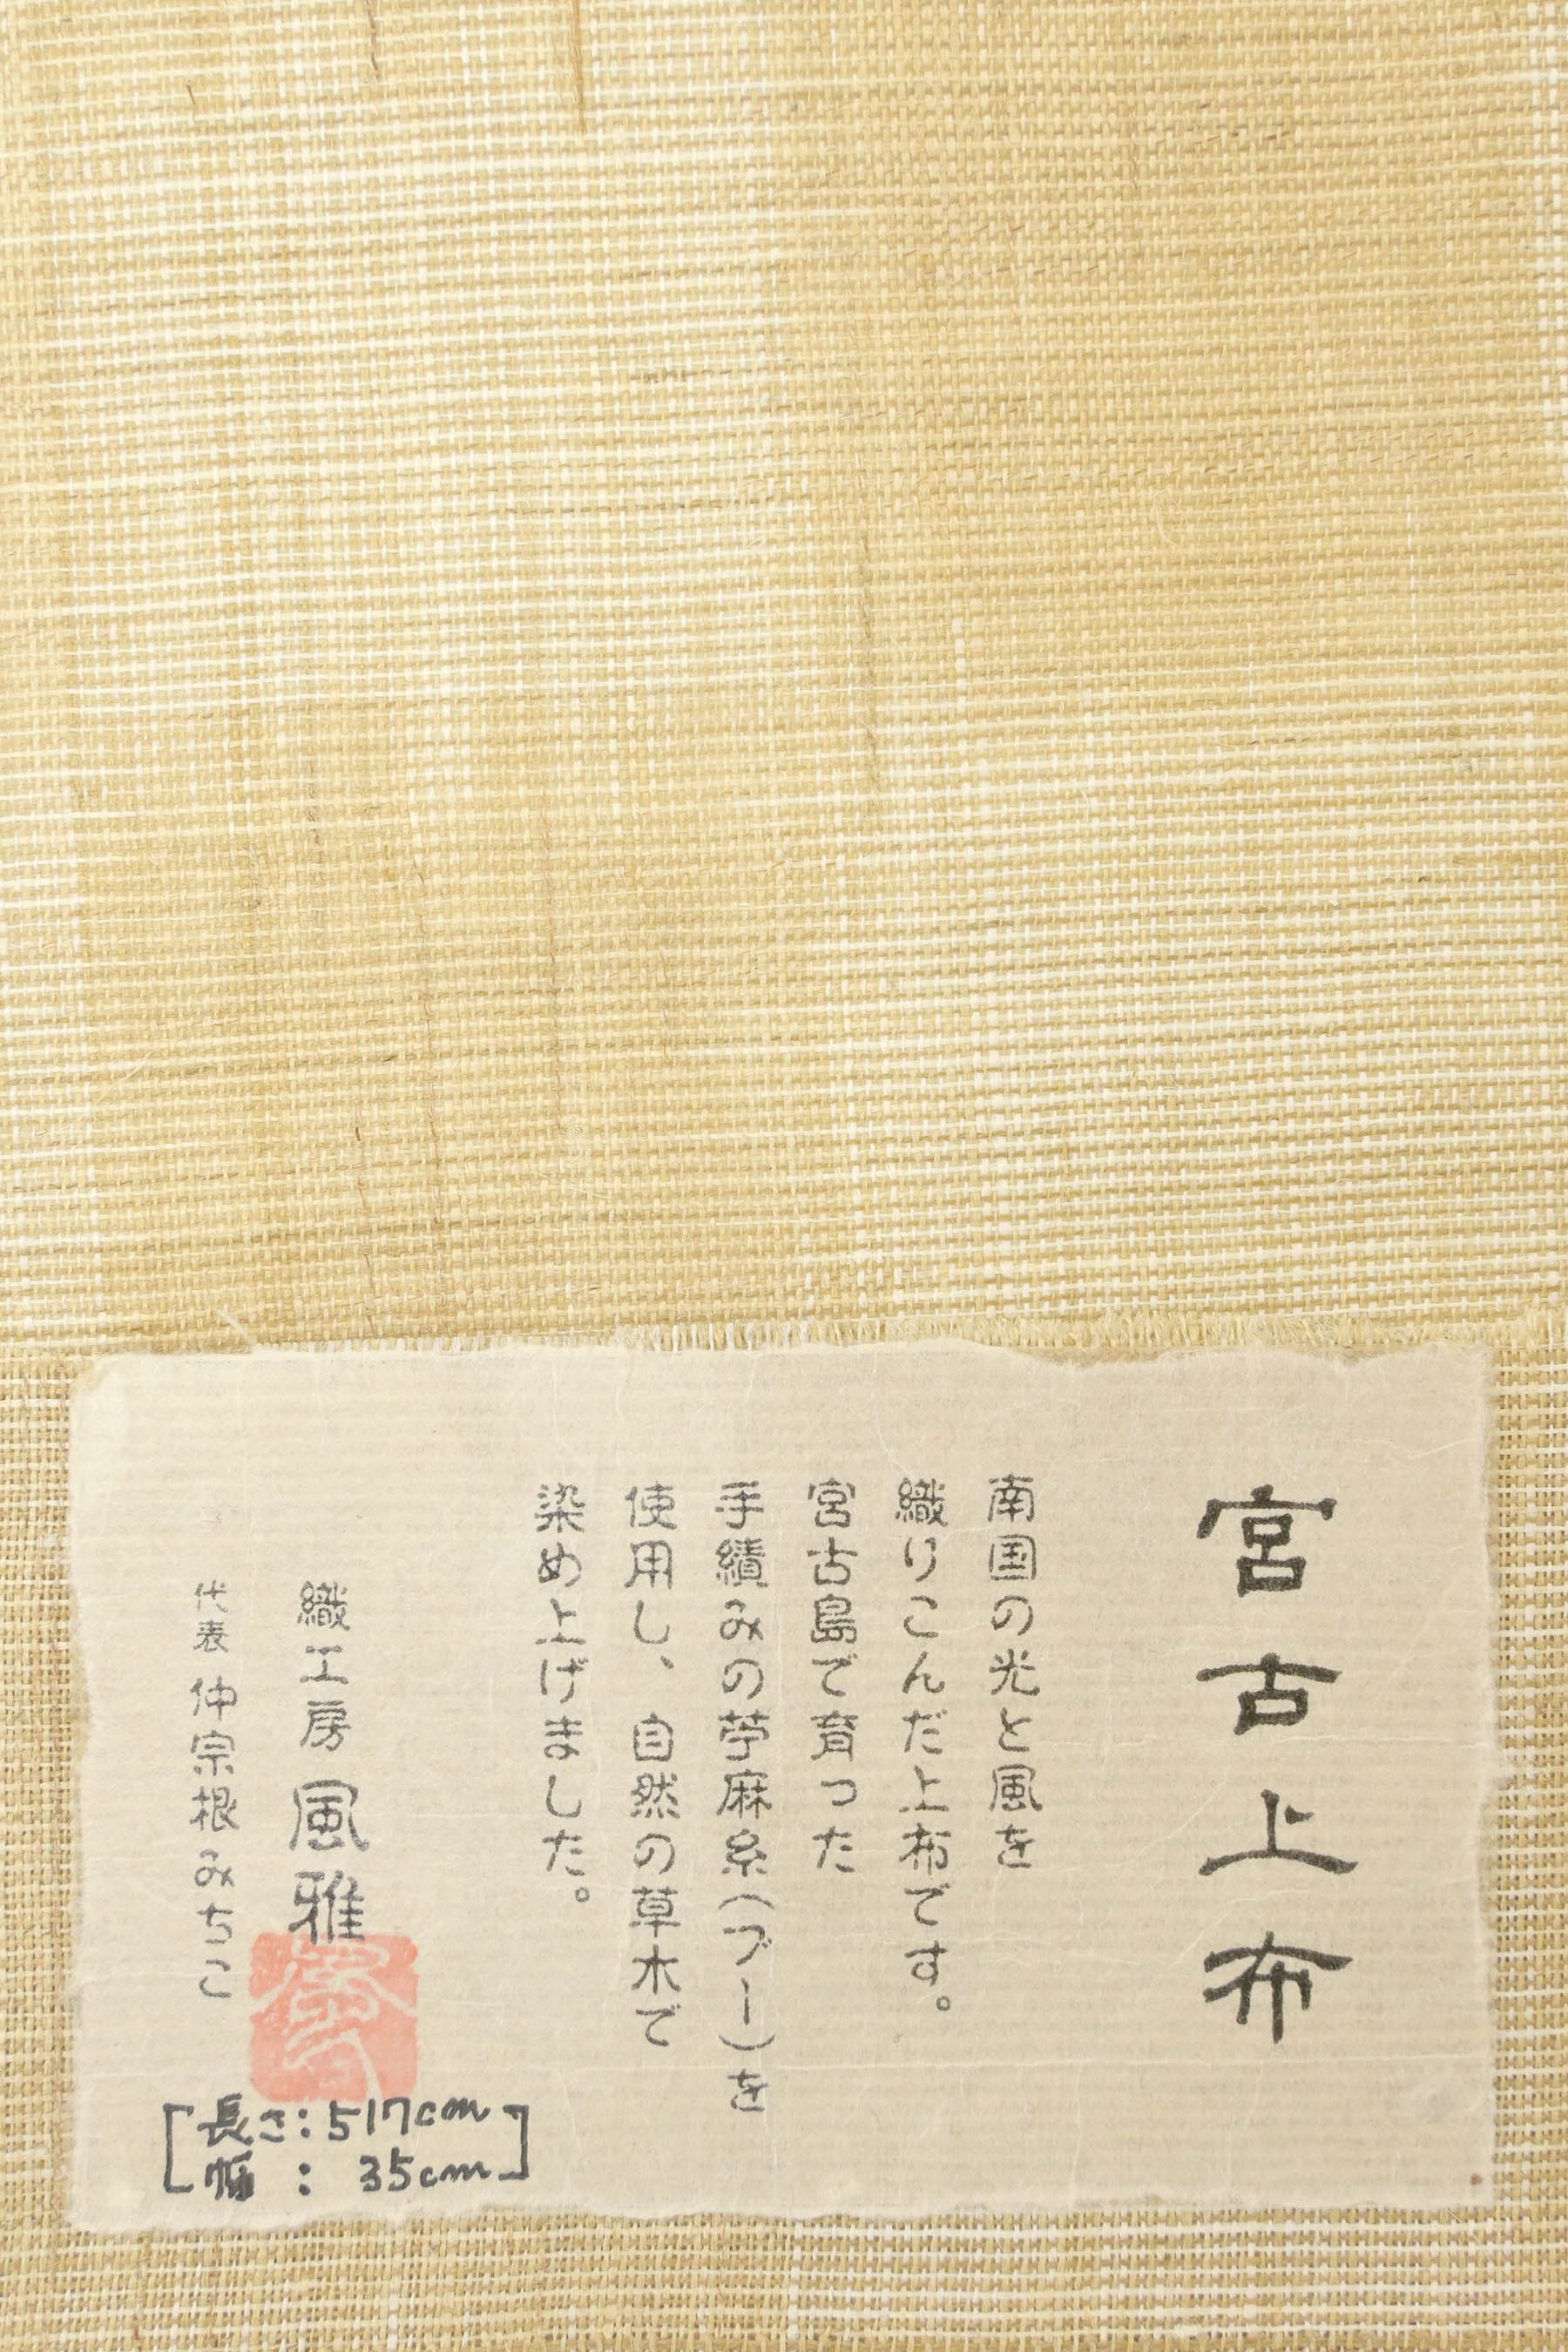 宮古上布
南国の光と風を
織りこんだ上布です。
宮古島で育った
手績みの苧麻糸(ブー)を
使用し、自然の草木で
染め上げました。
織工房 風雅
代表 仲宗根みちこ
長さ:517cm
幅 : 35cm